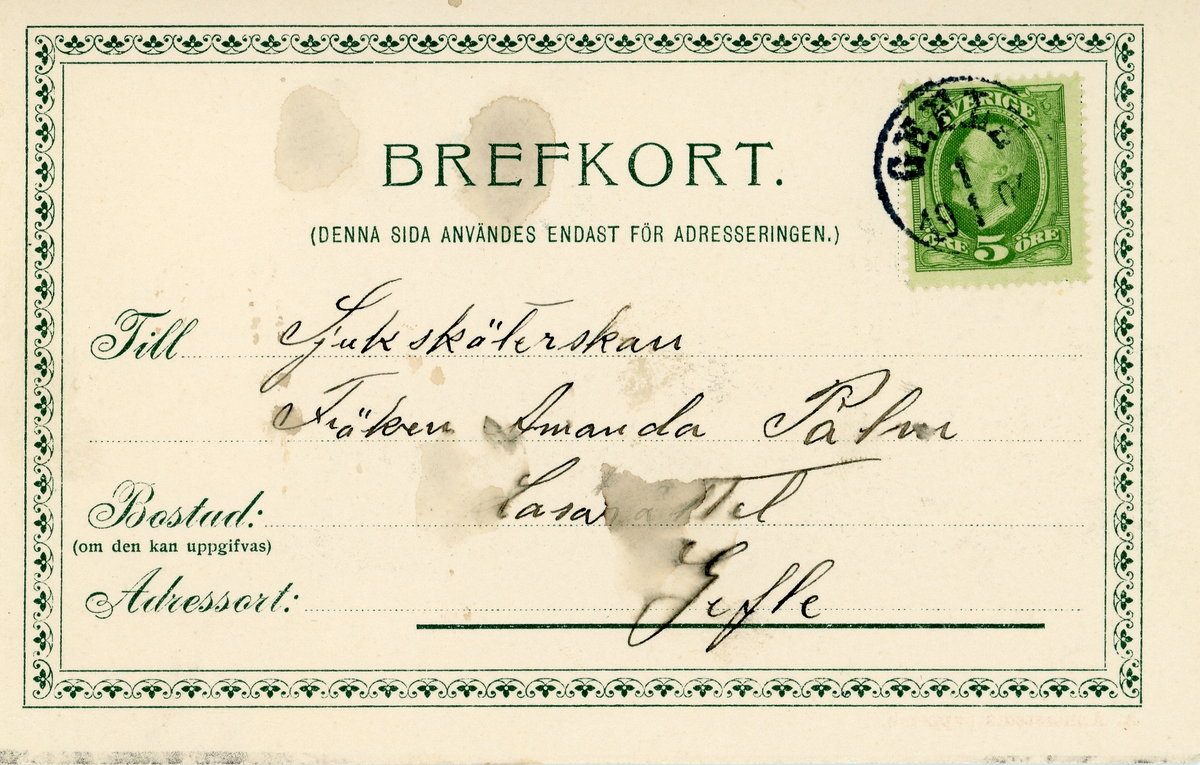 BREFKORT.
(DENNA SIDA ANVÄNDES ENDAST FÖR ADRESSERINGEN.)
SVERIGE
GEFLE
1
1
19
5 ÖRE
Till Sjuksköterskan
Fröken Amanda Palm
Bostad: Lasarettet
(om den kan uppgifvas)
Adressort: Gefle